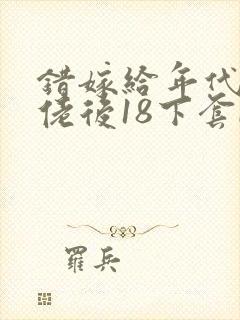 錯嫁給年代
佬後18下套
羅兵